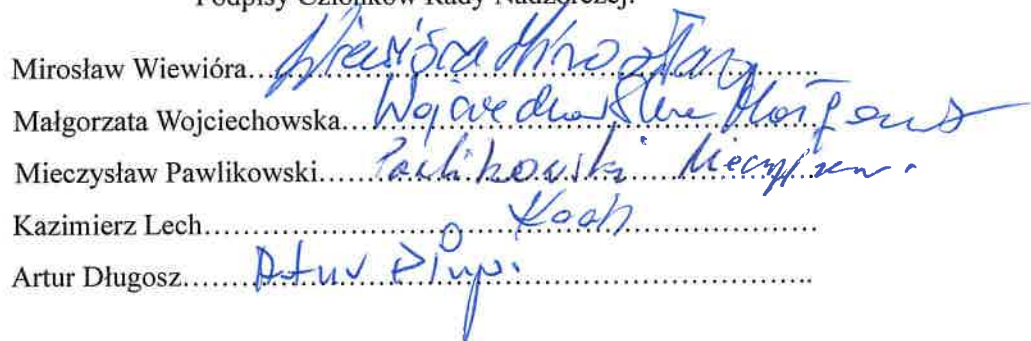 Podpisy Członków Rady Nadzorczej:
Mirosław Wiewióra.... Wiewióra Mirosław
Małgorzata Wojciechowska.... Wojciechowska Małgorz
Mieczysław Pawlikowski.... Pawlikowski Mieczysław
Kazimierz Lech....
Artur Długosz.... Artur Długosz